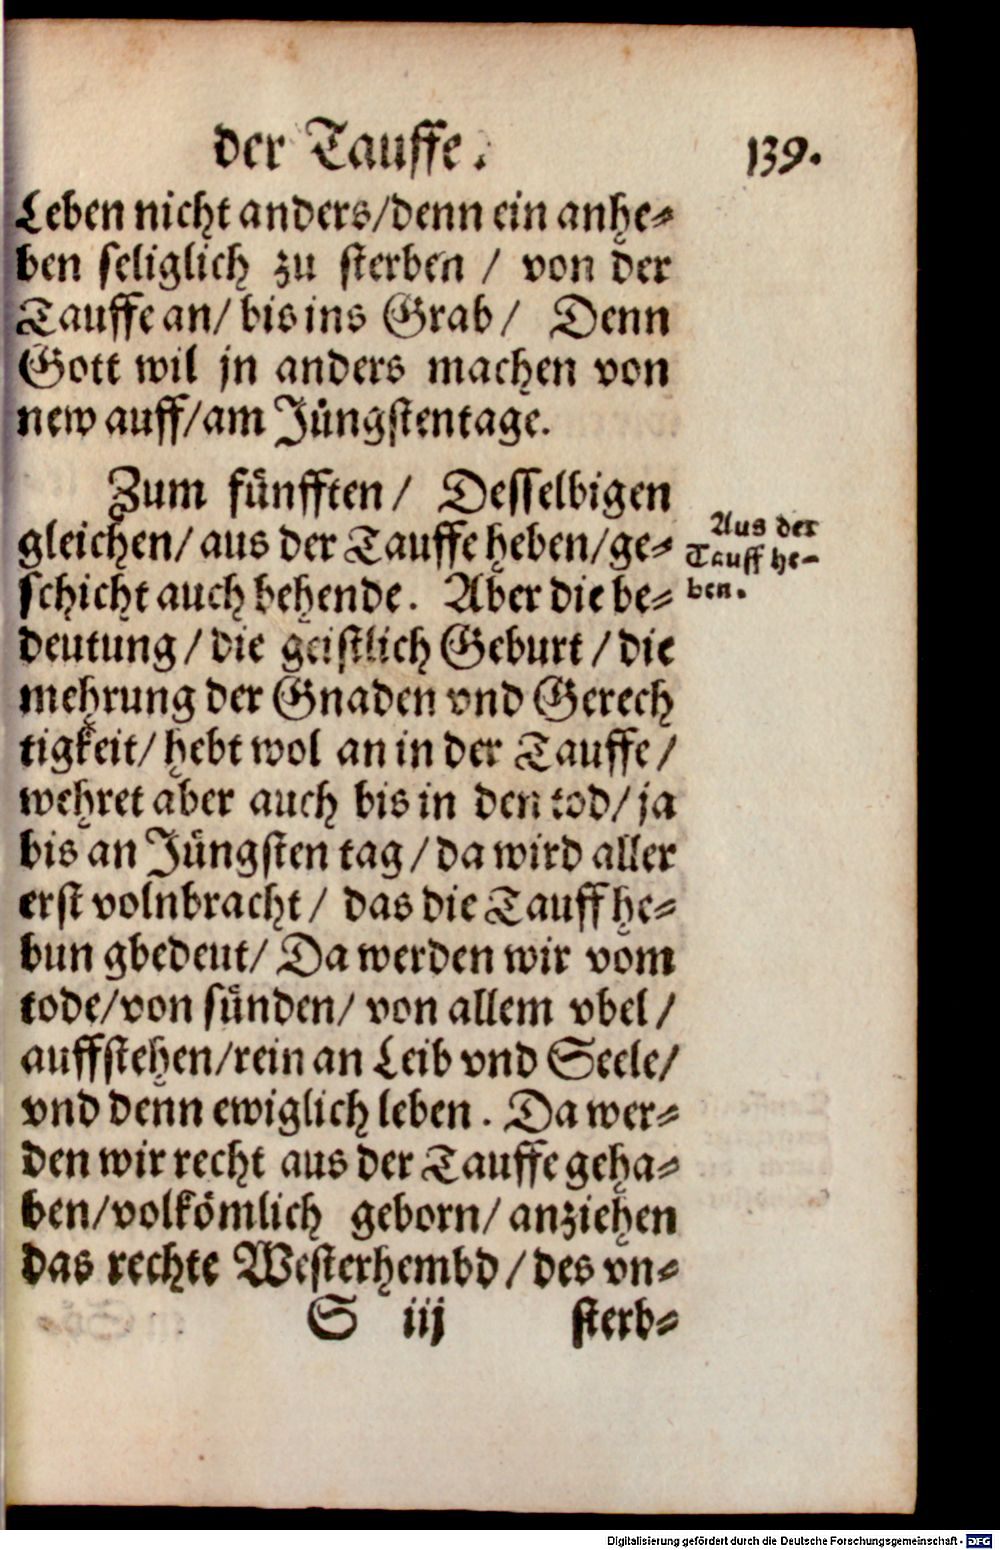 der Tauffe. 139.
Leben nicht anders/denn ein anhe⸗
ben seliglich zu sterben / von der
Tauffe an/ bis ins Grab/ Denn
Gott wil jn anders machen von
new auff/am Jüngstentage.
Zum fünfften/ Desselbigen
gleichen/ aus der Tauffe heben/ge⸗
schicht auch behende. Aber die be⸗
deutung/die geistlich Geburt/die
mehrung der Gnaden vnd Gerech
tigkeit/ hebt wol an in der Tauffe/
wehret aber auch bis in den tod/ja
bis an Jüngsten tag/da wird aller
erst volnbracht/ das die Tauff he⸗
bun gbedeut/ Da werden wir vom
tode/von sünden/ von allem vbel/
auffstehen/rein an Leib vnd Seele/
vnd denn ewiglich leben. Da wer⸗
den wir recht aus der Tauffe geha⸗
ben/volkömlich geborn/ anziehen
das rechte Westerhembd/des vn⸗
S iij sterb⸗
Aus der
Tauff he⸗
ben.
Digitalisierung gefördert durch die Deutsche Forschungsgemeinschaft - DFG